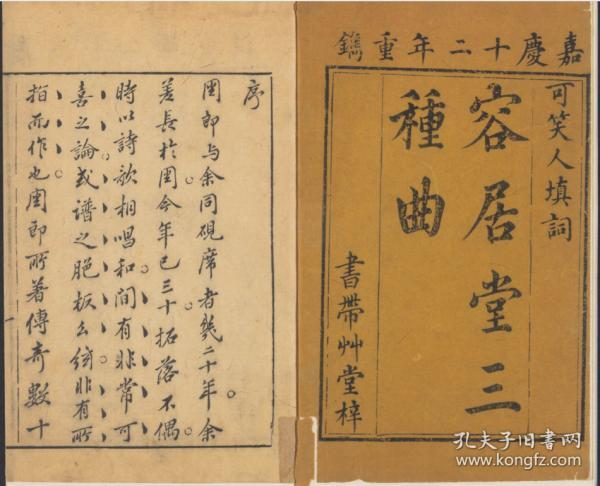 嘉慶十二年重鐫
可笑人填詞
容居堂三
種曲
書帶艸堂梓
序
周郎与余同硯席者幾二十年余
差長於周今年已三十拓落不偶
時以詩歌相唱和間有非常可
喜之論或譜之脃板幺絃非有所
指而作也周郎所著傳奇數十
一
孔夫子旧书网
www.kongfz.com